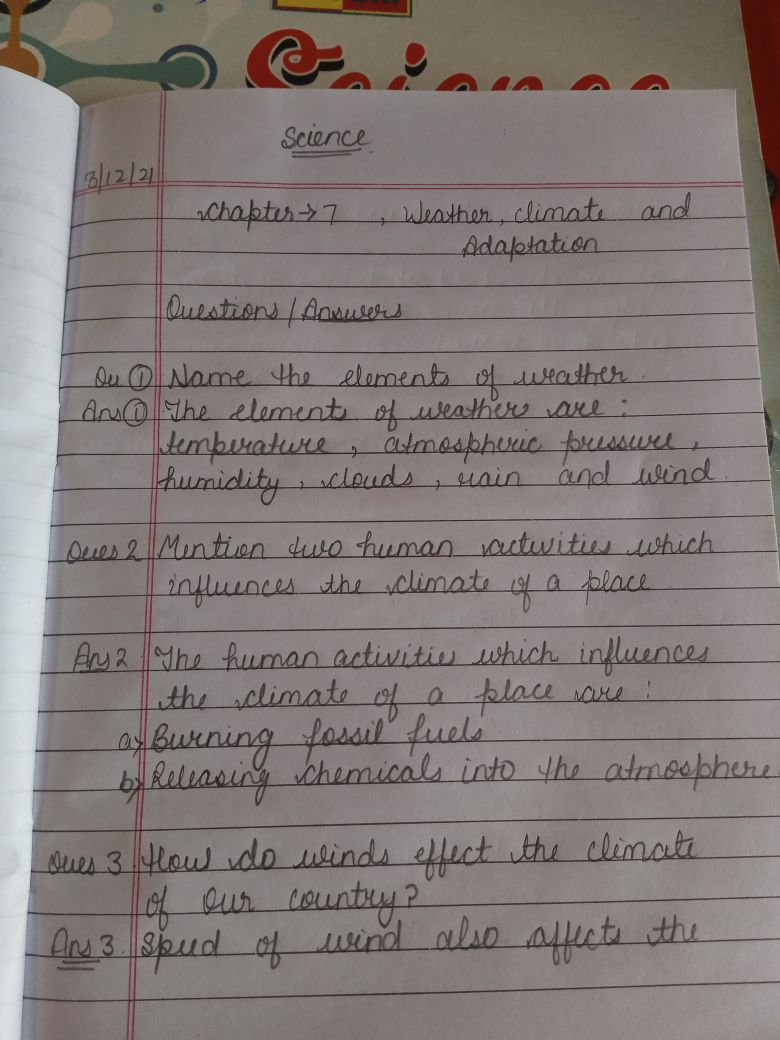 Science
Science
3/12/21
Chapter → 7 , Weather, climate and
Adaptation
Questions / Answers
Qu ① Name the elements of weather.
Ans ① The elements of weathers are :
temperature , atmospheric pressure ,
humidity , clouds , rain and wind.
Ques 2 Mention two human activities which
influences the climate of a place
Ans 2 The human activities which influences
the climate of a place are :
a) Burning fossil fuels
b) Releasing chemicals into the atmosphere
Ques 3 How do winds effect the climate
of our country?
Ans 3. Speed of wind also affects the